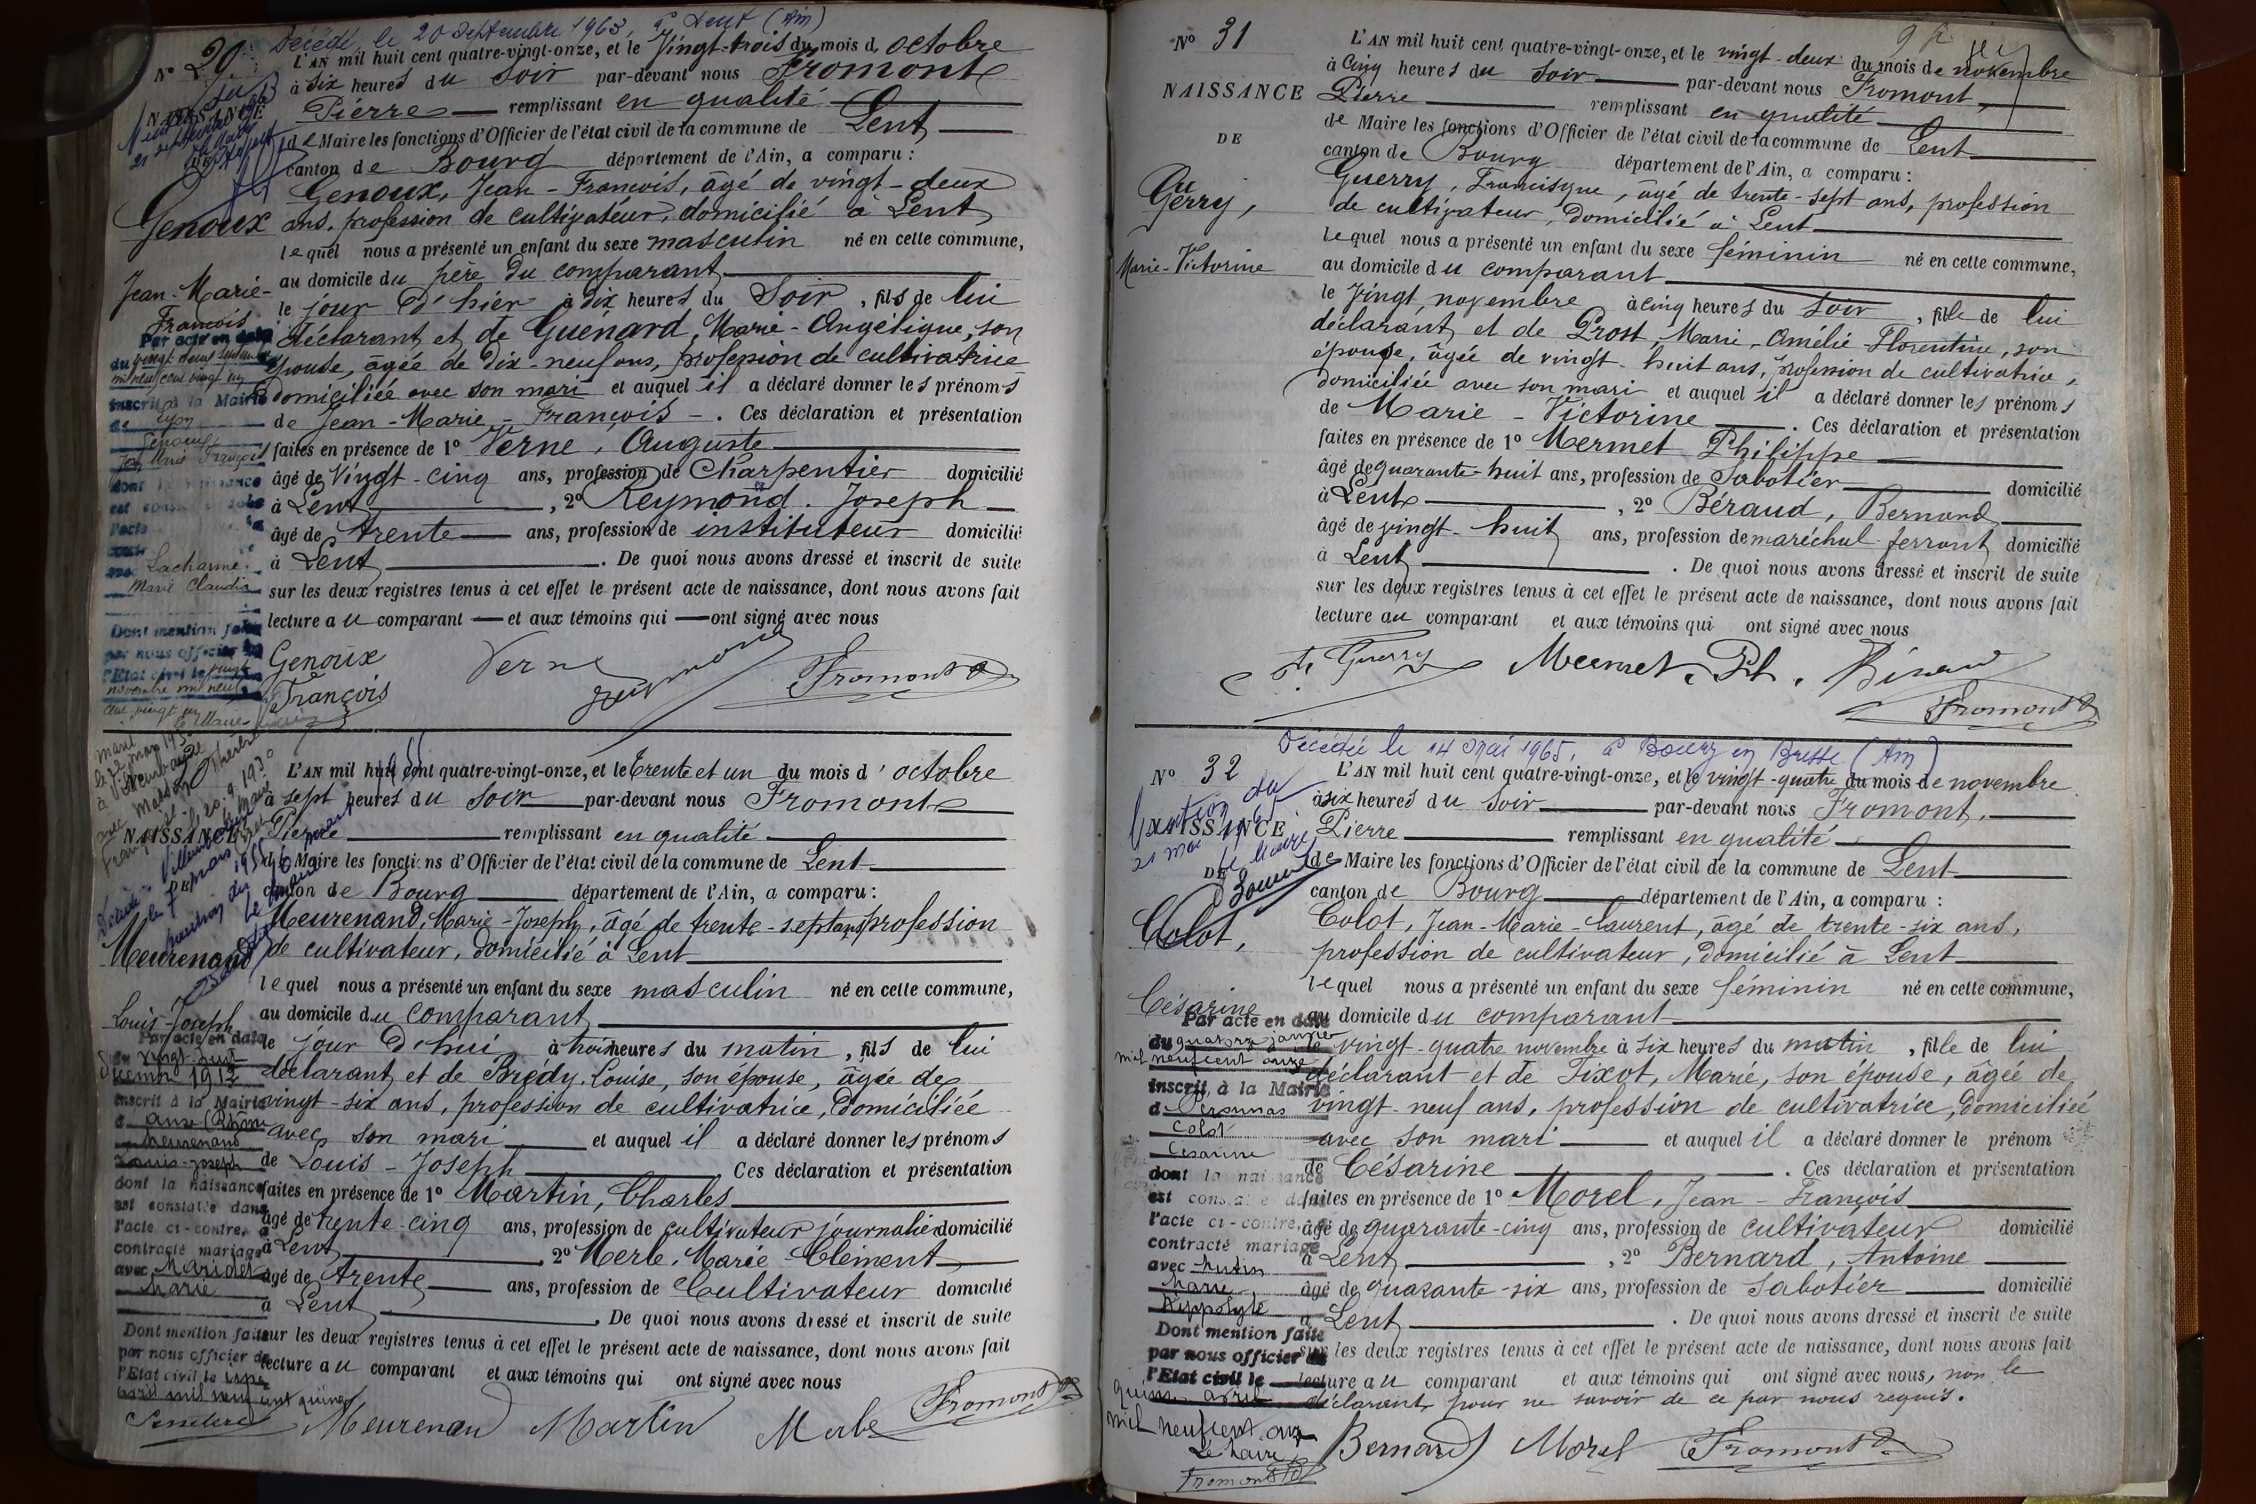 Décédé le 20 Septembre 1963, à Lent (Ain)
N° 29
L'AN mil huit cent quatre-vingt-onze, et le Vingt-trois du mois d'octobre
à six heures du soir par-devant nous Fromont
NAISSANCE
Pierre remplissant en qualité
de Maire les fonctions d'Officier de l'état civil de la commune de Lent
canton de Bourg département de l'Ain, a comparu :
Genoux, Jean-François, âgé de vingt-deux
Genoux
ans, profession de cultivateur, domicilié à Lent
lequel nous a présenté un enfant du sexe masculin né en cette commune,
Jean-Marie-
au domicile du père du comparant
François
le jour d'hier à dix heures du Soir, fils de lui
déclarant et de Guénard, Marie-Angélique, son
épouse, âgée de dix-neuf ans, profession de cultivatrice
domiciliée avec son mari et auquel il a déclaré donner les prénoms
de Jean-Marie-François-. Ces déclaration et présentation
faites en présence de 1° Verne, Auguste
âgé de Vingt-cinq ans, profession de Charpentier domicilié
à Lent, 2° Reymond. Joseph
âgé de trente ans, profession de instituteur domicilié
à Lent. De quoi nous avons dressé et inscrit de suite
sur les deux registres tenus à cet effet le présent acte de naissance, dont nous avons fait
lecture au comparant et aux témoins qui ont signé avec nous
Par acte en date
du vingt neuf septembre
mil neuf cent vingt un
inscrit à la Mairie
de Lyon
Genoux
Jean Marie François
dont la naissance
Lacharme
Marie Claudia
Dont mention faite
par nous officier de
l'Etat civil le vingt
novembre mil neuf
cent vingt un
Le Maire
Genoux
François
Verne
Reymond
Fromont
L'AN mil huit cent quatre-vingt-onze, et le trente et un du mois d'octobre
à sept heures du soir par-devant nous Fromont
NAISSANCE
Pierre remplissant en qualité
de Maire les fonctions d'Officier de l'état civil de la commune de Lent
DE
canton de Bourg département de l'Ain, a comparu :
Meurenand, Marie-Joseph, âgé de trente-sept ans, profession
Meurenand
de cultivateur, domicilié à Lent
lequel nous a présenté un enfant du sexe masculin né en cette commune,
Louis-Joseph
au domicile du comparant
le jour d'hui à trois heures du matin, fils de lui
déclarant et de Bredy. Louise, son épouse, âgée de
vingt-six ans, profession de cultivatrice, domiciliée
avec son mari et auquel il a déclaré donner les prénoms
de Louis-Joseph Ces déclaration et présentation
faites en présence de 1° Martin, Charles
âgé de trente-cinq ans, profession de cultivateur journalier domicilié
à Lent, 2° Merle. Marie Clément
âgé de trente ans, profession de Cultivateur domicilié
à Lent. De quoi nous avons dressé et inscrit de suite
sur les deux registres tenus à cet effet le présent acte de naissance, dont nous avons fait
lecture au comparant et aux témoins qui ont signé avec nous
Par acte en date
du vingt-huit
1912
inscrit à la Mairie
d'Anse (Rhône
Meurenand
Louis-Joseph
dont la naissance
est constatée dans
l'acte ci-contre, a
contracté mariage
avec
Marie
Dont mention faite
par nous officier de
l'Etat civil le
avril mil neuf cent quinze
Meurenan
Martin
Merle
Fromont
N° 31
L'AN mil huit cent quatre-vingt-onze, et le vingt-deux du mois de novembre
à cinq heures du soir par-devant nous Fromont,
NAISSANCE
Pierre remplissant en qualité
de Maire les fonctions d'Officier de l'état civil de la commune de Lent
DE
canton de Bourg département de l'Ain, a comparu :
Guerry, Francisque, âgé de trente-sept ans, profession
Guerry,
de cultivateur, domicilié à Lent
lequel nous a présenté un enfant du sexe féminin né en cette commune,
Marie-Victorine
au domicile du comparant
le vingt novembre à cinq heures du soir, fille de lui
déclarant et de Prost, Marie-Amélie-Florentine, son
épouse, âgée de vingt-huit ans, profession de cultivatrice,
domiciliée avec son mari et auquel il a déclaré donner les prénoms
de Marie-Victorine. Ces déclaration et présentation
faites en présence de 1° Mermet Philippe
âgé de quarante-huit ans, profession de Sabotier domicilié
à Lent, 2° Béraud, Bernard
âgé de vingt-huit ans, profession de maréchal-ferrant domicilié
à Lent. De quoi nous avons dressé et inscrit de suite
sur les deux registres tenus à cet effet le présent acte de naissance, dont nous avons fait
lecture au comparant et aux témoins qui ont signé avec nous
Guerry
Mermet. Ph.
Fromont
Décédée le 14 Mai 1965, à Bourg en Bresse (Ain)
N° 32
L'AN mil huit cent quatre-vingt-onze, et le vingt-quatre du mois de novembre
à six heures du soir par-devant nous Fromont,
NAISSANCE
Pierre remplissant en qualité
21 mai 1965
Le Maire
DE
de Maire les fonctions d'Officier de l'état civil de la commune de Lent
canton de Bourg département de l'Ain, a comparu :
Colot,
Colot, Jean-Marie-Laurent, âgé de trente-six ans,
profession de cultivateur, domicilié à Lent
lequel nous a présenté un enfant du sexe féminin né en cette commune,
Césarine
au domicile du comparant
le vingt-quatre novembre à six heures du matin, fille de lui
déclarant et de Fixot, Marie, son épouse, âgée de
vingt-neuf ans, profession de cultivatrice, domiciliée
avec son mari et auquel il a déclaré donner le prénom
de Césarine. Ces déclaration et présentation
faites en présence de 1° Morel, Jean-François
âgé de quarante-cinq ans, profession de cultivateur domicilié
à Lent, 2° Bernard, Antoine
âgé de quarante-six ans, profession de Sabotier domicilié
à Lent. De quoi nous avons dressé et inscrit de suite
sur les deux registres tenus à cet effet le présent acte de naissance, dont nous avons fait
lecture au comparant et aux témoins qui ont signé avec nous, non le
déclarant pour ne savoir de ce par nous requis.
Par acte en date
du quatorze janvier
mil neuf cent onze
inscrit à la Mairie
de Péronnas
Colot
Césarine
dont la naissance
est constatée dans
l'acte ci-contre, a
contracté mariage
avec
Marie
Hippolyte
Dont mention faite
par nous officier de
l'Etat civil le
quinze avril
mil neuf cent onze
Le Maire
Fromont
Bernard
Morel
Fromont